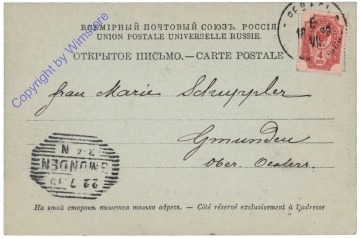 ВСЕМІРНЫЙ ПОЧТОВЫЙ СОЮЗЪ. РОССІЯ
UNION POSTALE UNIVERSELLE RUSSIE.
ОТКРЫТОЕ ПИСЬМО.—CARTE POSTALE
Frau Marie Schuppler
Gmunden
Ober. Oesterr.
GMUNDEN
22 7
На этой сторонѣ пишется только адресъ. — Côté réservé exclusivement à l'adresse
Copyright by Wimstore